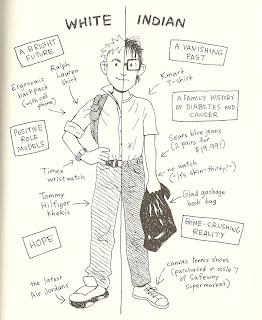 WHITE
INDIAN
A BRIGHT
FUTURE
Ralph
Lauren
shirt
Ergonomic
backpack
(with cell
phone)
POSITIVE
ROLE
MODELS
Timex
wristwatch
Tommy
Hilfiger
khakis
HOPE
the latest
Air Jordans
A VANISHING
PAST
Kmart
T-shirt
A FAMILY HISTORY
OF
DIABETES AND
CANCER
Sears blue jeans
(2 pairs for
$19.99!)
no watch
(-"it's skin-thirty!"-)
Glad garbage
book bag
BONE-CRUSHING
REALITY
canvas tennis shoes
(purchased in aisle 7
of Safeway
supermarket)